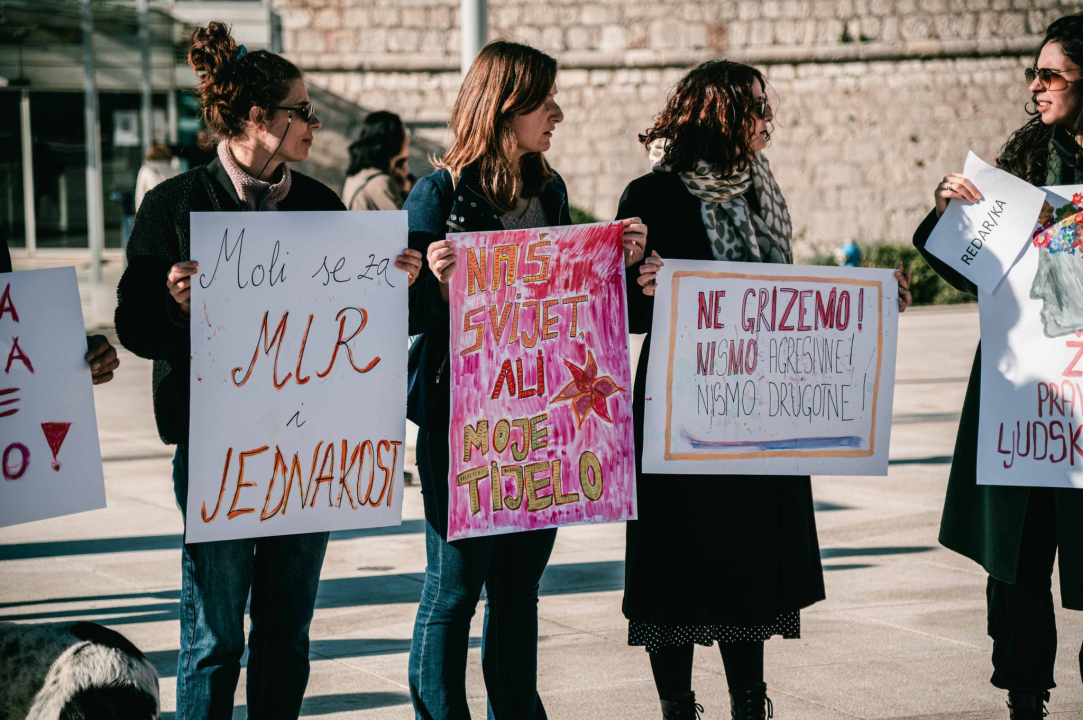 A
A
O!
Moli se za
MIR
i
JEDNAKOST
NAŠ
SVIJET,
ALI
MOJE
TIJELO
NE GRIZEMO!
NISMO AGRESIVNE!
NISMO DRUGOTNE!
REDAR/KA
Ž
PRAV
LJUDSK